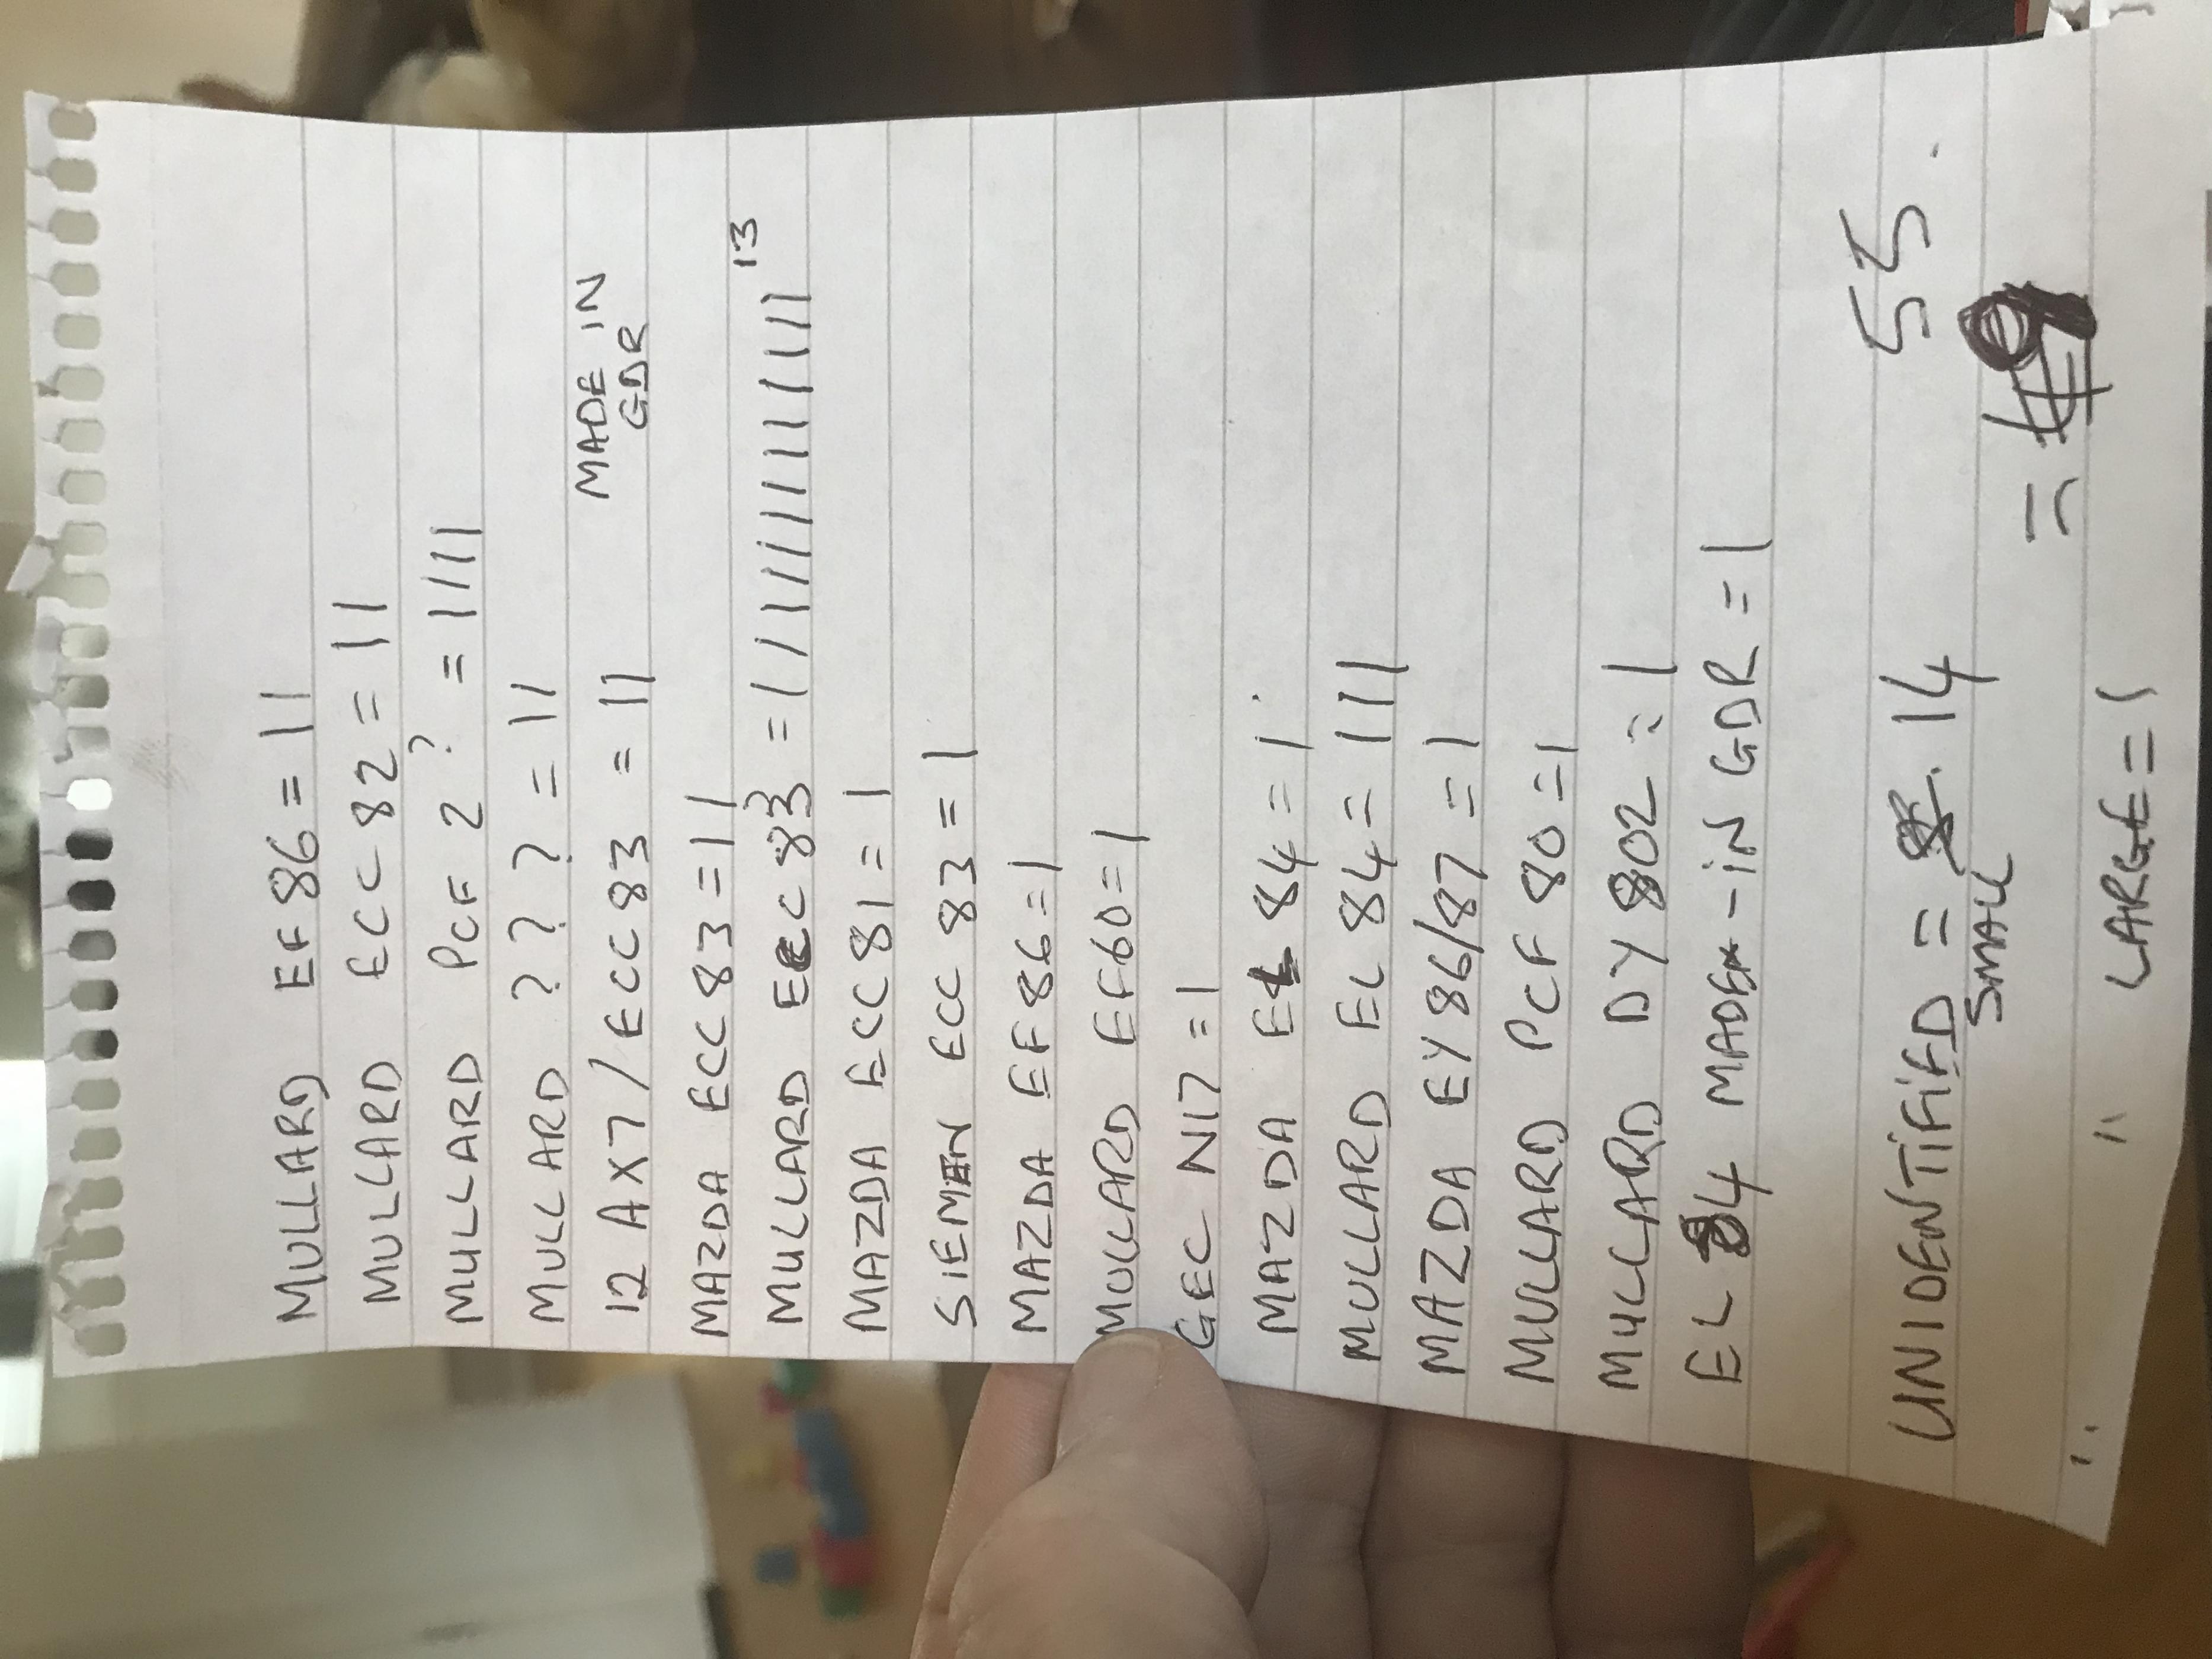 MULLARD EF86 = 11
MULLARD ECC 82 = 11
MULLARD PCF 2? = 1111
MULLARD ??? = 11
12AX7/ECC83 = 11 MADE IN GDR
MAZDA ECC83 = 11
MULLARD ECC83 = 1111111111111 13
MAZDA ECC81 = 1
SIEMEN ECC 83 = 1
MAZDA EF86 = 1
MULLARD EF60 = 1
GEC N17 = 1
MAZDA EL 84 = 1
MULLARD EL 84 = 111
MAZDA EY86/87 = 1
MULLARD PCF 80 = 1
MULLARD DY802 = 1
EL 84 MADE - IN GDR = 1
UNIDENTIFIED = 14 55
SMALL =
" " LARGE = 1